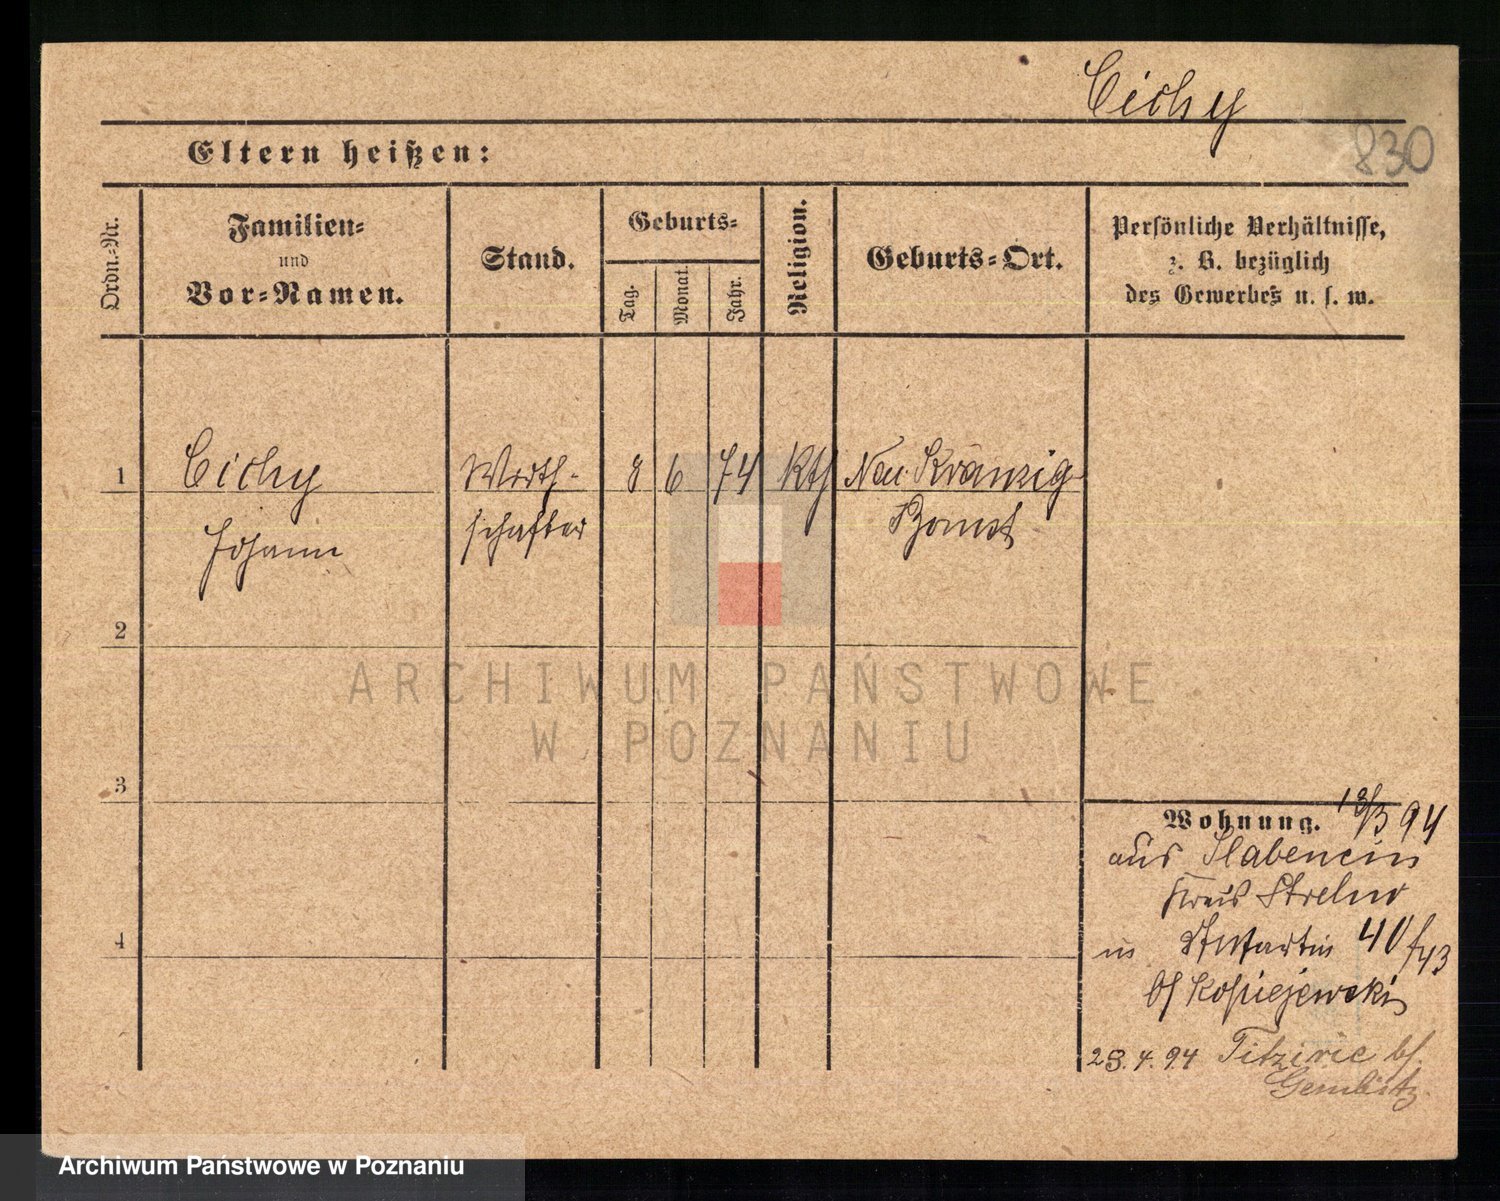 Cichy
830
Eltern heißen:
Ordn.-Nr.
Familien-
und
Vor-Namen.
Stand.
Geburts-
Tag.
Monat.
Jahr.
Religion.
Geburts-Ort.
Persönliche Verhältnisse,
z. B. bezüglich
des Gewerbes u. s. w.
1 Cichy Wirth- 8 6 74 kth Neu Kränzig
Johann schafter Bomst
2
ARCHIWUM PAŃSTWOWE
W POZNANIU
3
Wohnung. 13/3 94
aus Slabencin
Kreis Strelno
4
in St Martin 40/43
bf
23.4.94 bf.
Gembitz
Archiwum Państwowe w Poznaniu